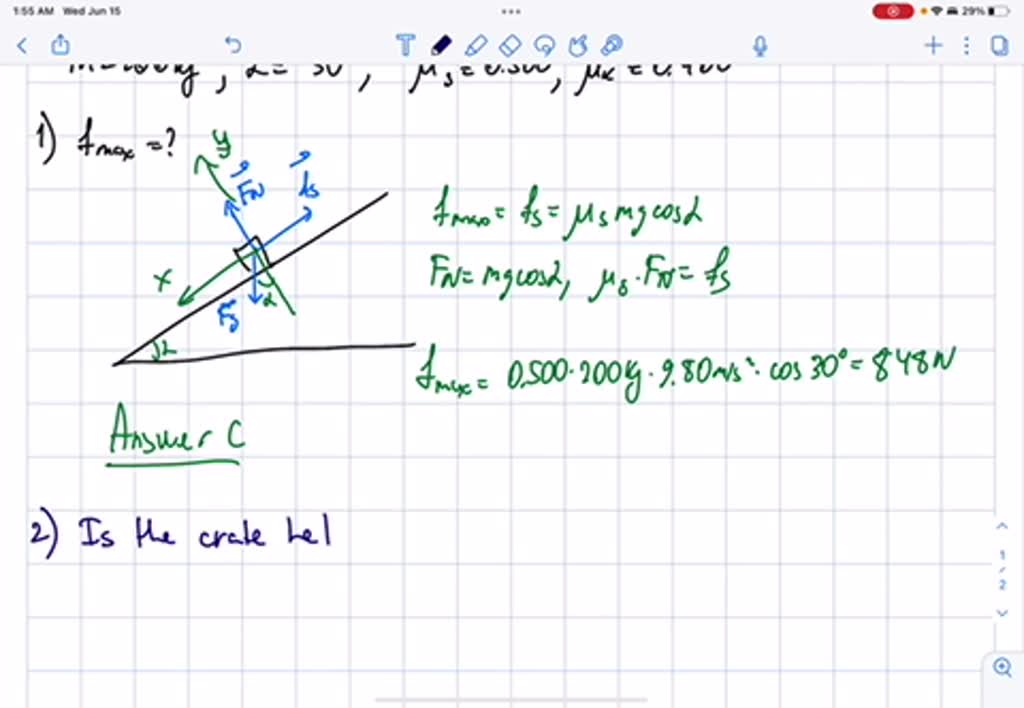 1:55 AM Wed Jun 15
29%
1) fmax = ?
y
FN
fs
x
Fg
α
α
fmax = fs = μs mg cosα
FN = mg cosα, μs · FN = fs
fmax = 0.500 · 200kg · 9.80 m/s² · cos 30° = 848 N
Answer C
2) Is the crate hel
1
/
2